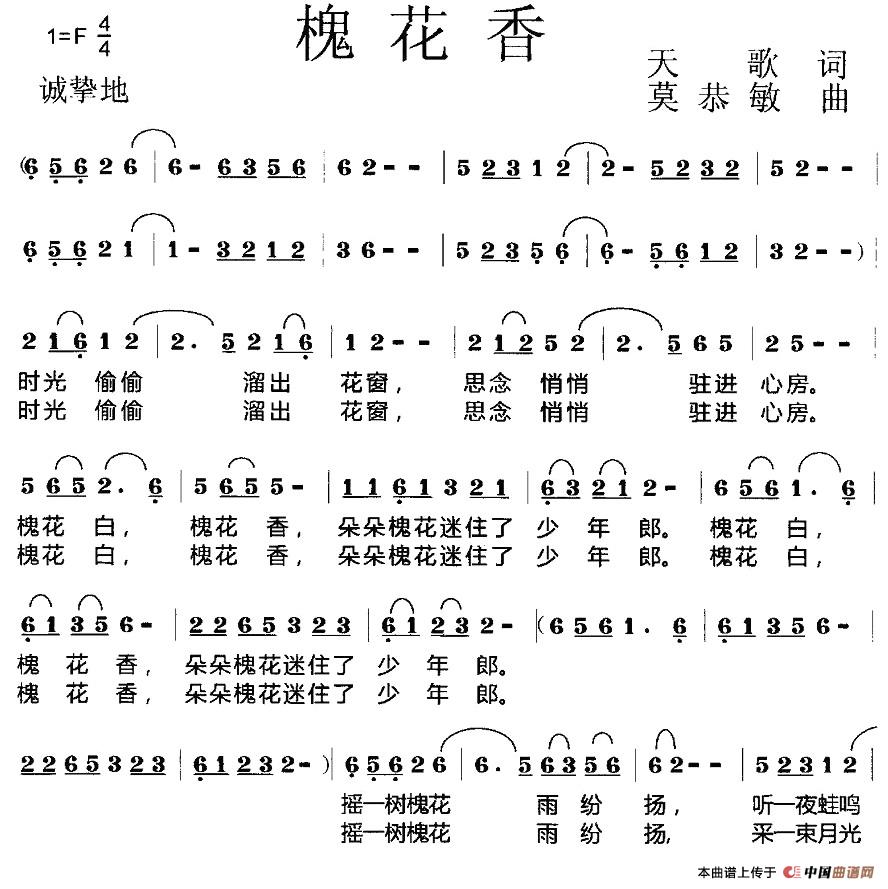 槐花香
1=F 4/4
天歌 词
诚挚地
莫恭敏 曲
(6 5 6 2 6 | 6 - 6 3 5 6 | 6 2 - - | 5 2 3 1 2 | 2 - 5 2 3 2 | 5 2 - - |
6 5 6 2 1 | 1 - 3 2 1 2 | 3 6 - - | 5 2 3 5 6 | 6 - 5 6 1 2 | 3 2 - - ) |
2 1 6 1 2 | 2 . 5 2 1 6 | 1 2 - - | 2 1 2 5 2 | 2 . 5 6 5 | 2 5 - - |
时光 偷偷 溜出 花窗， 思念 悄悄 驻进 心房。
时光 偷偷 溜出 花窗， 思念 悄悄 驻进 心房。
5 6 5 2 . 6 | 5 6 5 5 - | 1 1 6 1 3 2 1 | 6 3 2 1 2 - | 6 5 6 1 . 6 |
槐花 白， 槐花 香， 朵朵槐花迷住了 少 年 郎。 槐花 白，
槐花 白， 槐花 香， 朵朵槐花迷住了 少 年 郎。 槐花 白，
6 1 3 5 6 - | 2 2 6 5 3 2 3 | 6 1 2 3 2 - | (6 5 6 1 . 6 | 6 1 3 5 6 - |
槐 花 香， 朵朵槐花迷住了 少 年 郎。
槐 花 香， 朵朵槐花迷住了 少 年 郎。
2 2 6 5 3 2 3 | 6 1 2 3 2 - ) | 6 5 6 2 6 | 6 . 5 6 3 5 6 | 6 2 - - | 5 2 3 1 2
摇一树槐花 雨 纷 扬， 听一夜蛙鸣
摇一树槐花 雨 纷 扬， 采一束月光
本曲谱上传于 中国曲谱网